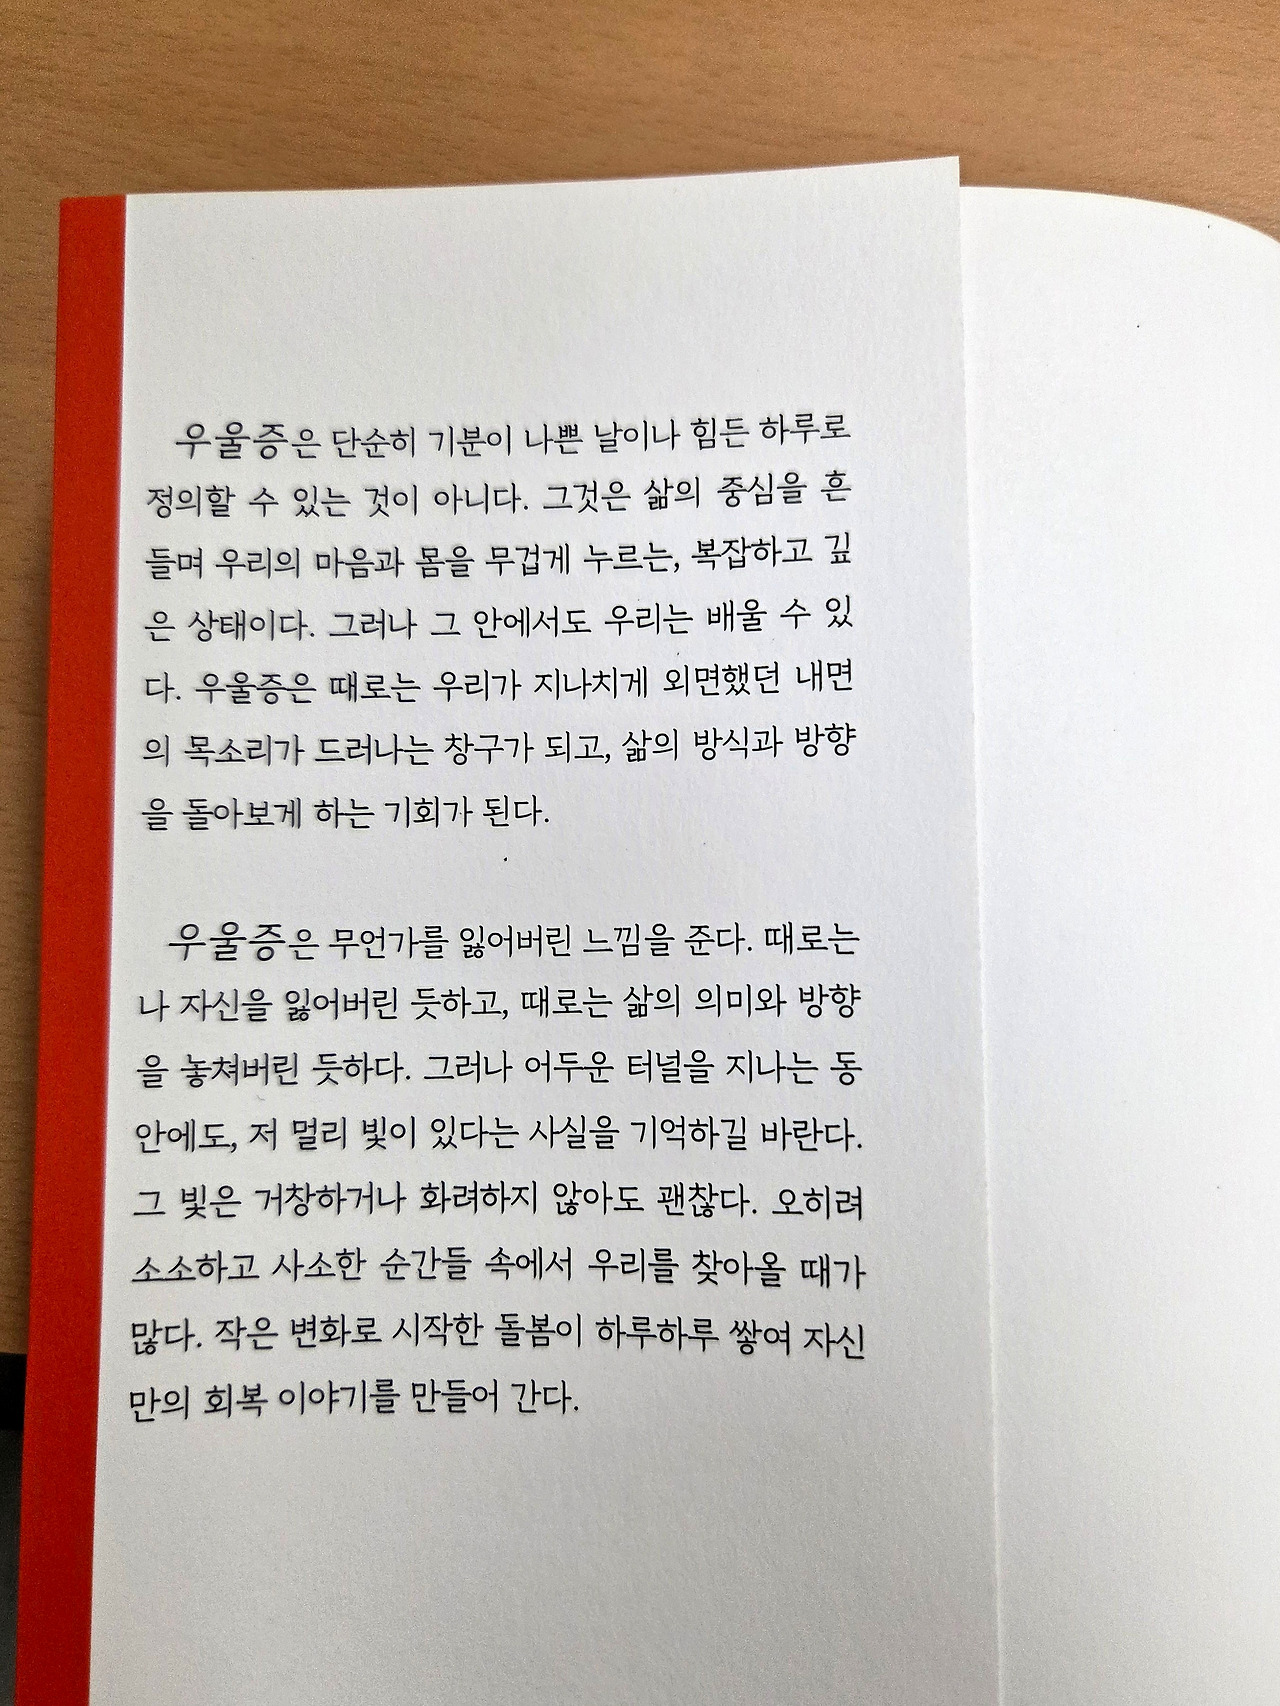 우울증은 단순히 기분이 나쁜 날이나 힘든 하루로
정의할 수 있는 것이 아니다. 그것은 삶의 중심을 흔
들며 우리의 마음과 몸을 무겁게 누르는, 복잡하고 깊
은 상태이다. 그러나 그 안에서도 우리는 배울 수 있
다. 우울증은 때로는 우리가 지나치게 외면했던 내면
의 목소리가 드러나는 창구가 되고, 삶의 방식과 방향
을 돌아보게 하는 기회가 된다.
우울증은 무언가를 잃어버린 느낌을 준다. 때로는
나 자신을 잃어버린 듯하고, 때로는 삶의 의미와 방향
을 놓쳐버린 듯하다. 그러나 어두운 터널을 지나는 동
안에도, 저 멀리 빛이 있다는 사실을 기억하길 바란다.
그 빛은 거창하거나 화려하지 않아도 괜찮다. 오히려
소소하고 사소한 순간들 속에서 우리를 찾아올 때가
많다. 작은 변화로 시작한 돌봄이 하루하루 쌓여 자신
만의 회복 이야기를 만들어 간다.